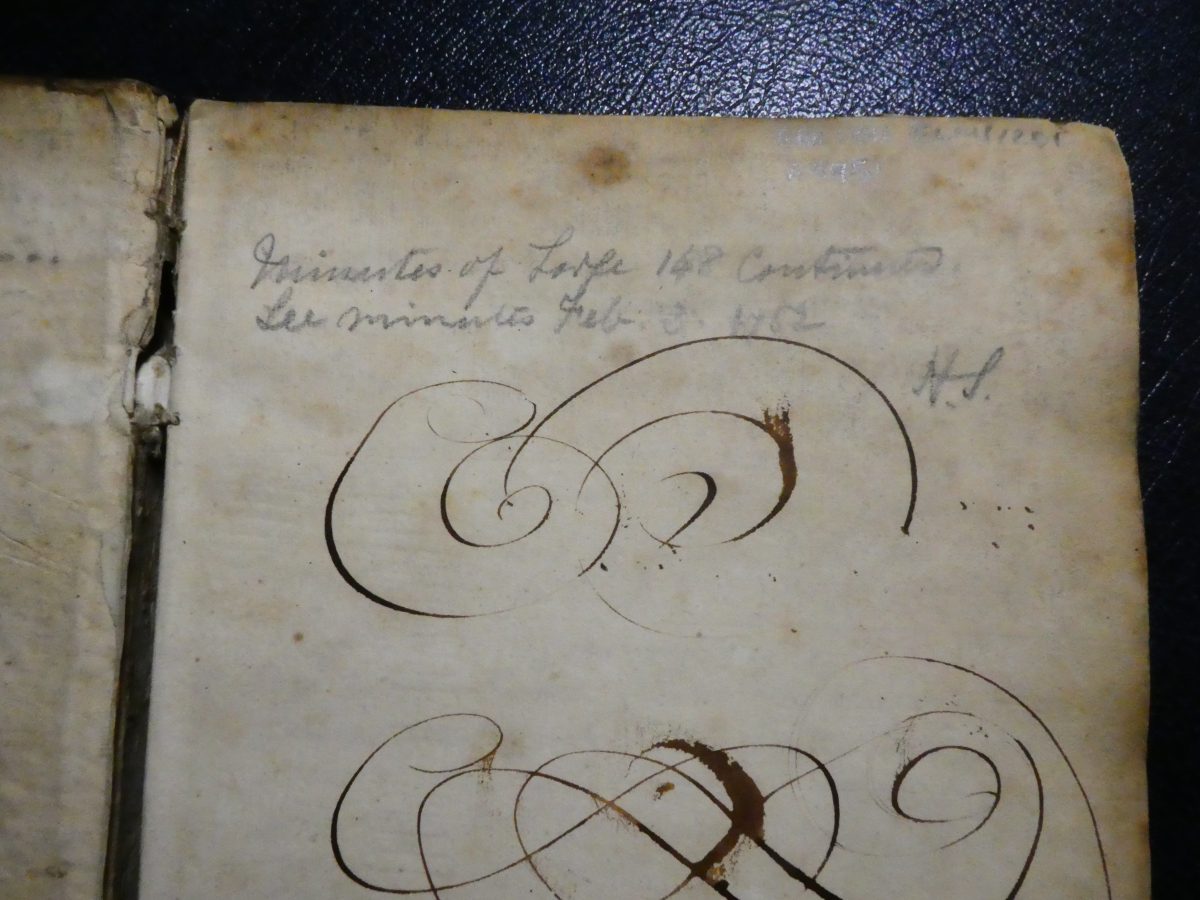 Minutes of Lodge 148 Continued.
See minutes Feb. 3. 1752
H.S.